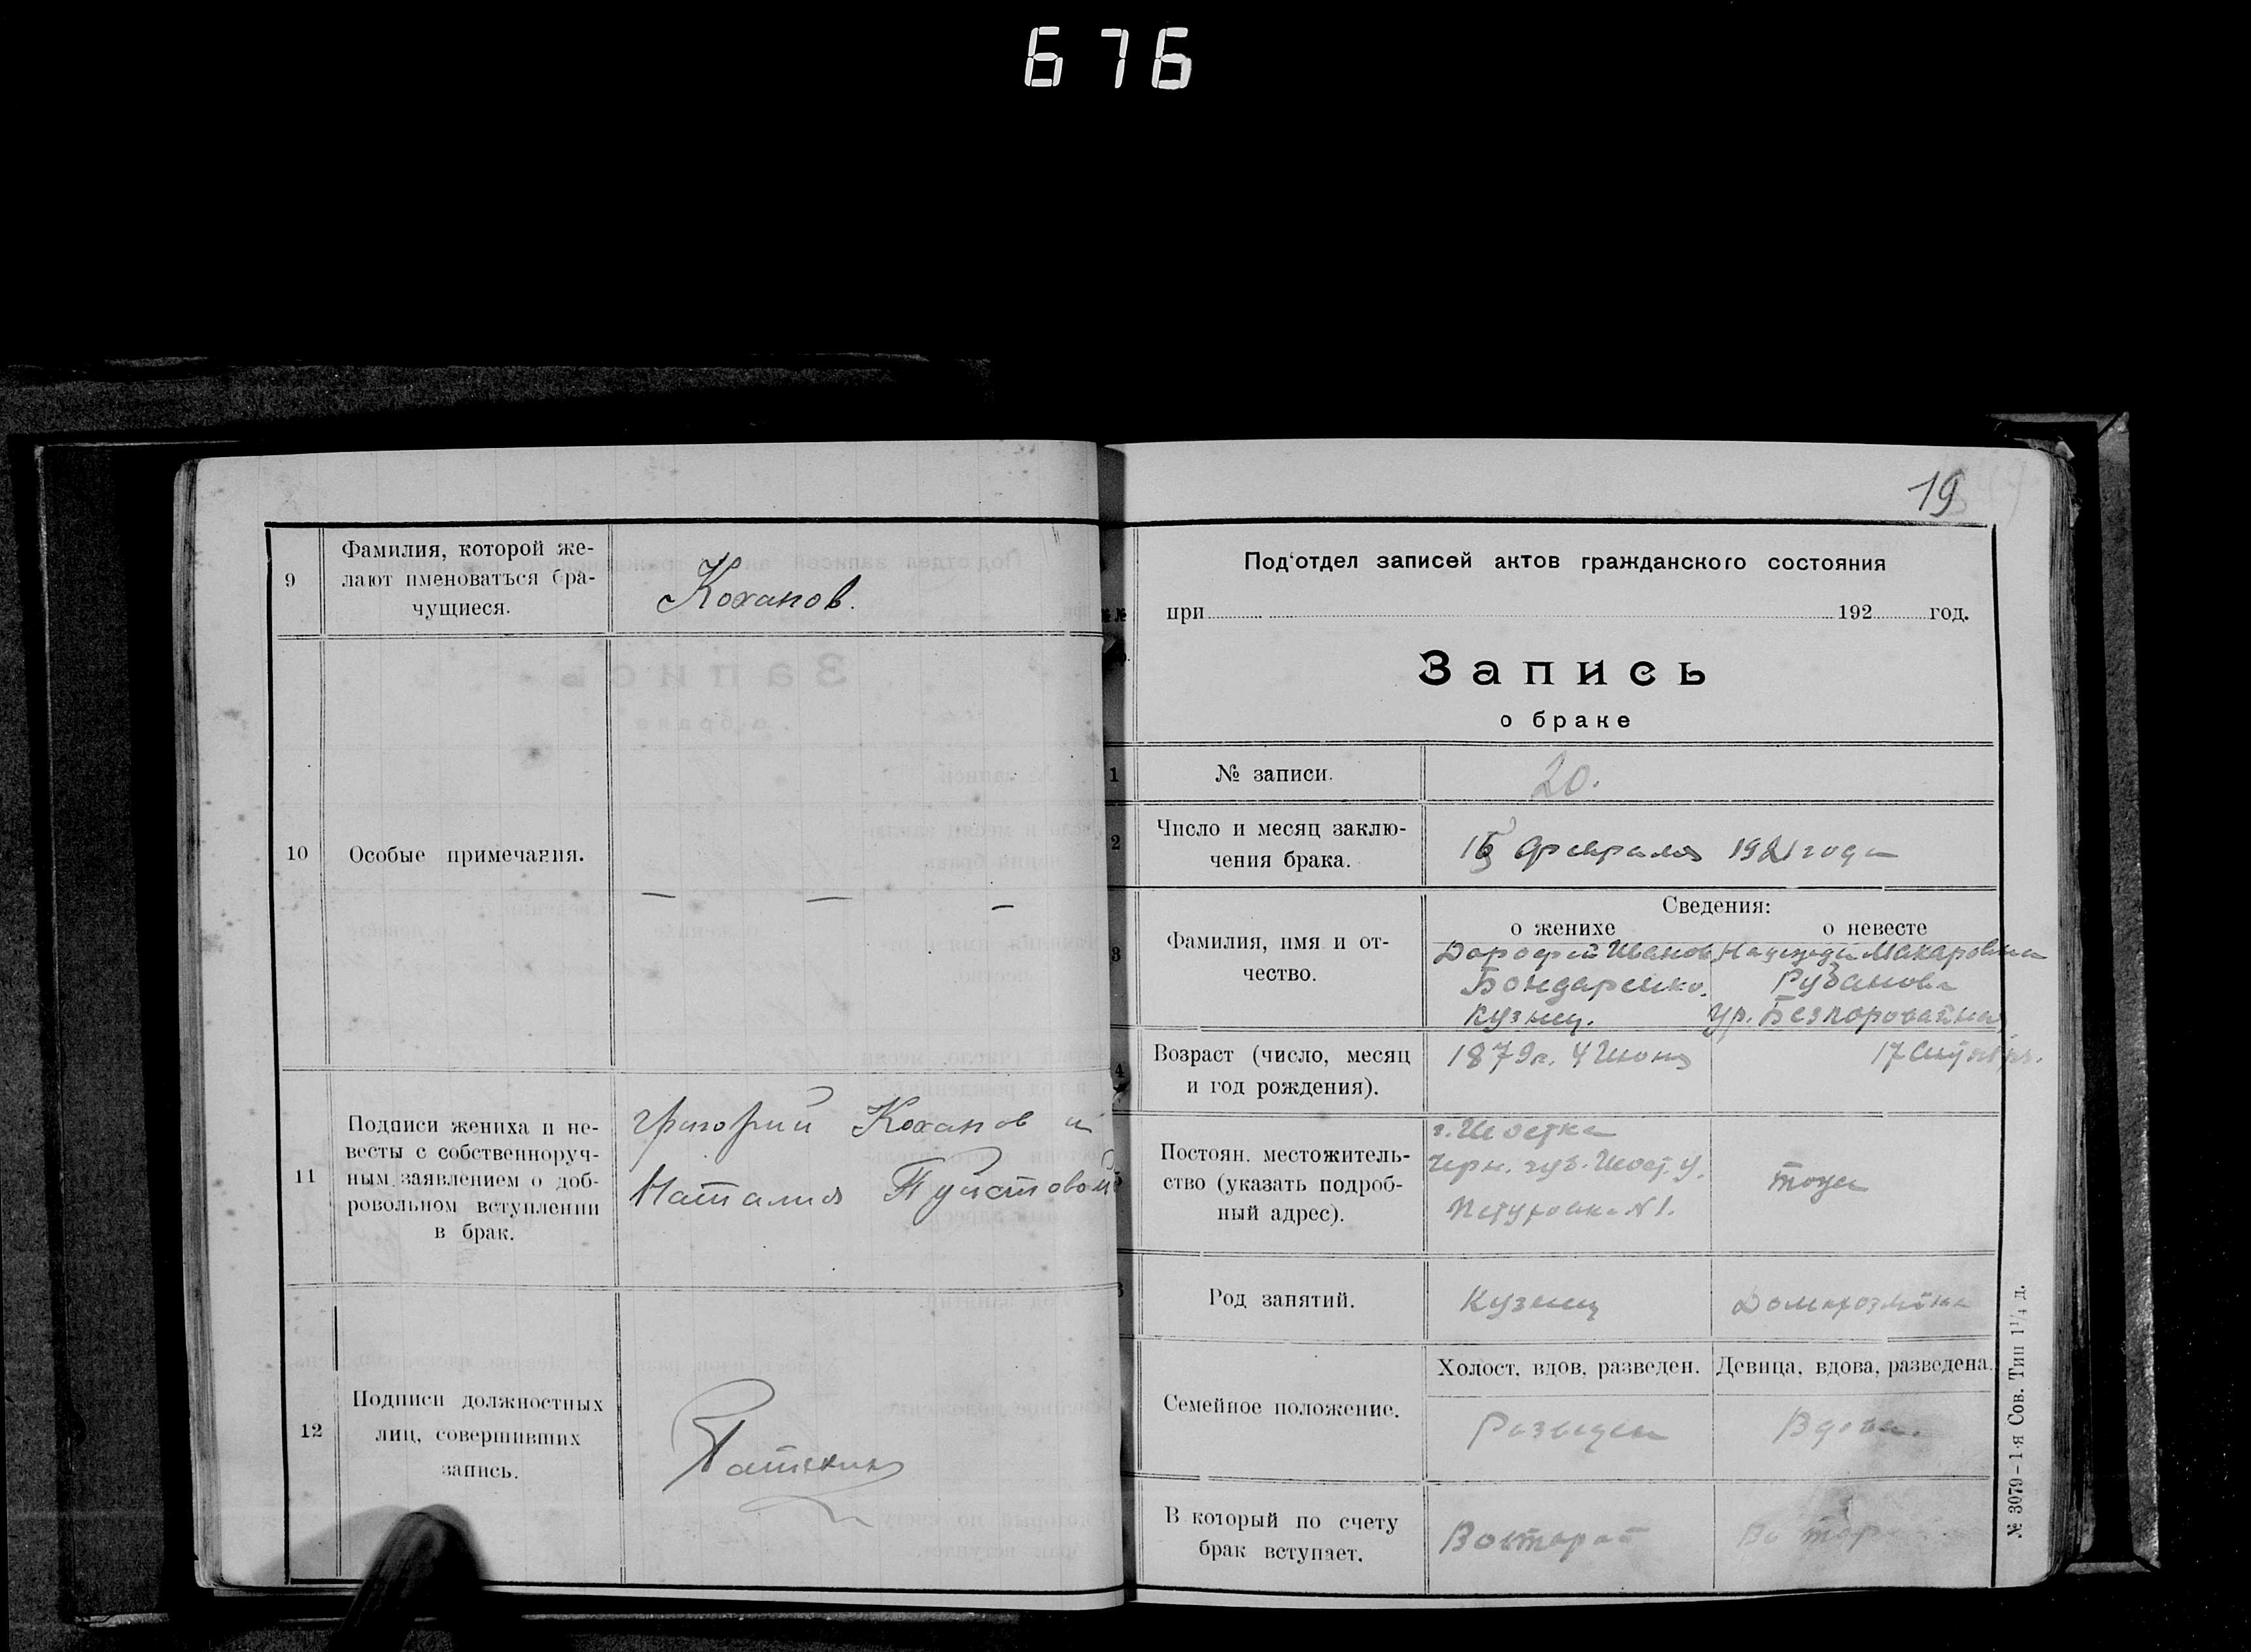 676
9
Фамилия, которой же-
лают именоваться бра-
чущиеся.
Коханов.
10
Особые примечания.
— — —
11
Подписи жениха и не-
весты с собственноруч-
ным заявлением о доб-
ровольном вступлении
в брак.
Григорий Коханов и
Наталия
12
Подписи должностных
лиц, совершивших
запись.
19
Под'отдел записей актов гражданского состояния
при 192 год.
Запись
о браке
1
№ записи.
20.
2
Число и месяц заклю-
чения брака.
Февраля 1921 года
3
Фамилия, имя и от-
чество.
Сведения:
о женихе
о невесте
Дорофей Иванов
Бондаренко.
Кузнец.
Надежда Макаровна
Рубанова
ур.
4
Возраст (число, месяц
и год рождения).
1879г. 4 Июня
17
5
Постоян. местожитель-
ство (указать подроб-
ный адрес).
г. Шостка
Черн. губ. Шост. у.
№ 1.
тоже
Род занятий.
Кузнец
Домохозяйка
Семейное положение.
Холост, вдов, разведен.
Девица, вдова, разведена.
Разведен
Вдова.
В который по счету
брак вступает.
Во второй
Во
№ 3079–1-я Сов. Тип 1¼ д.